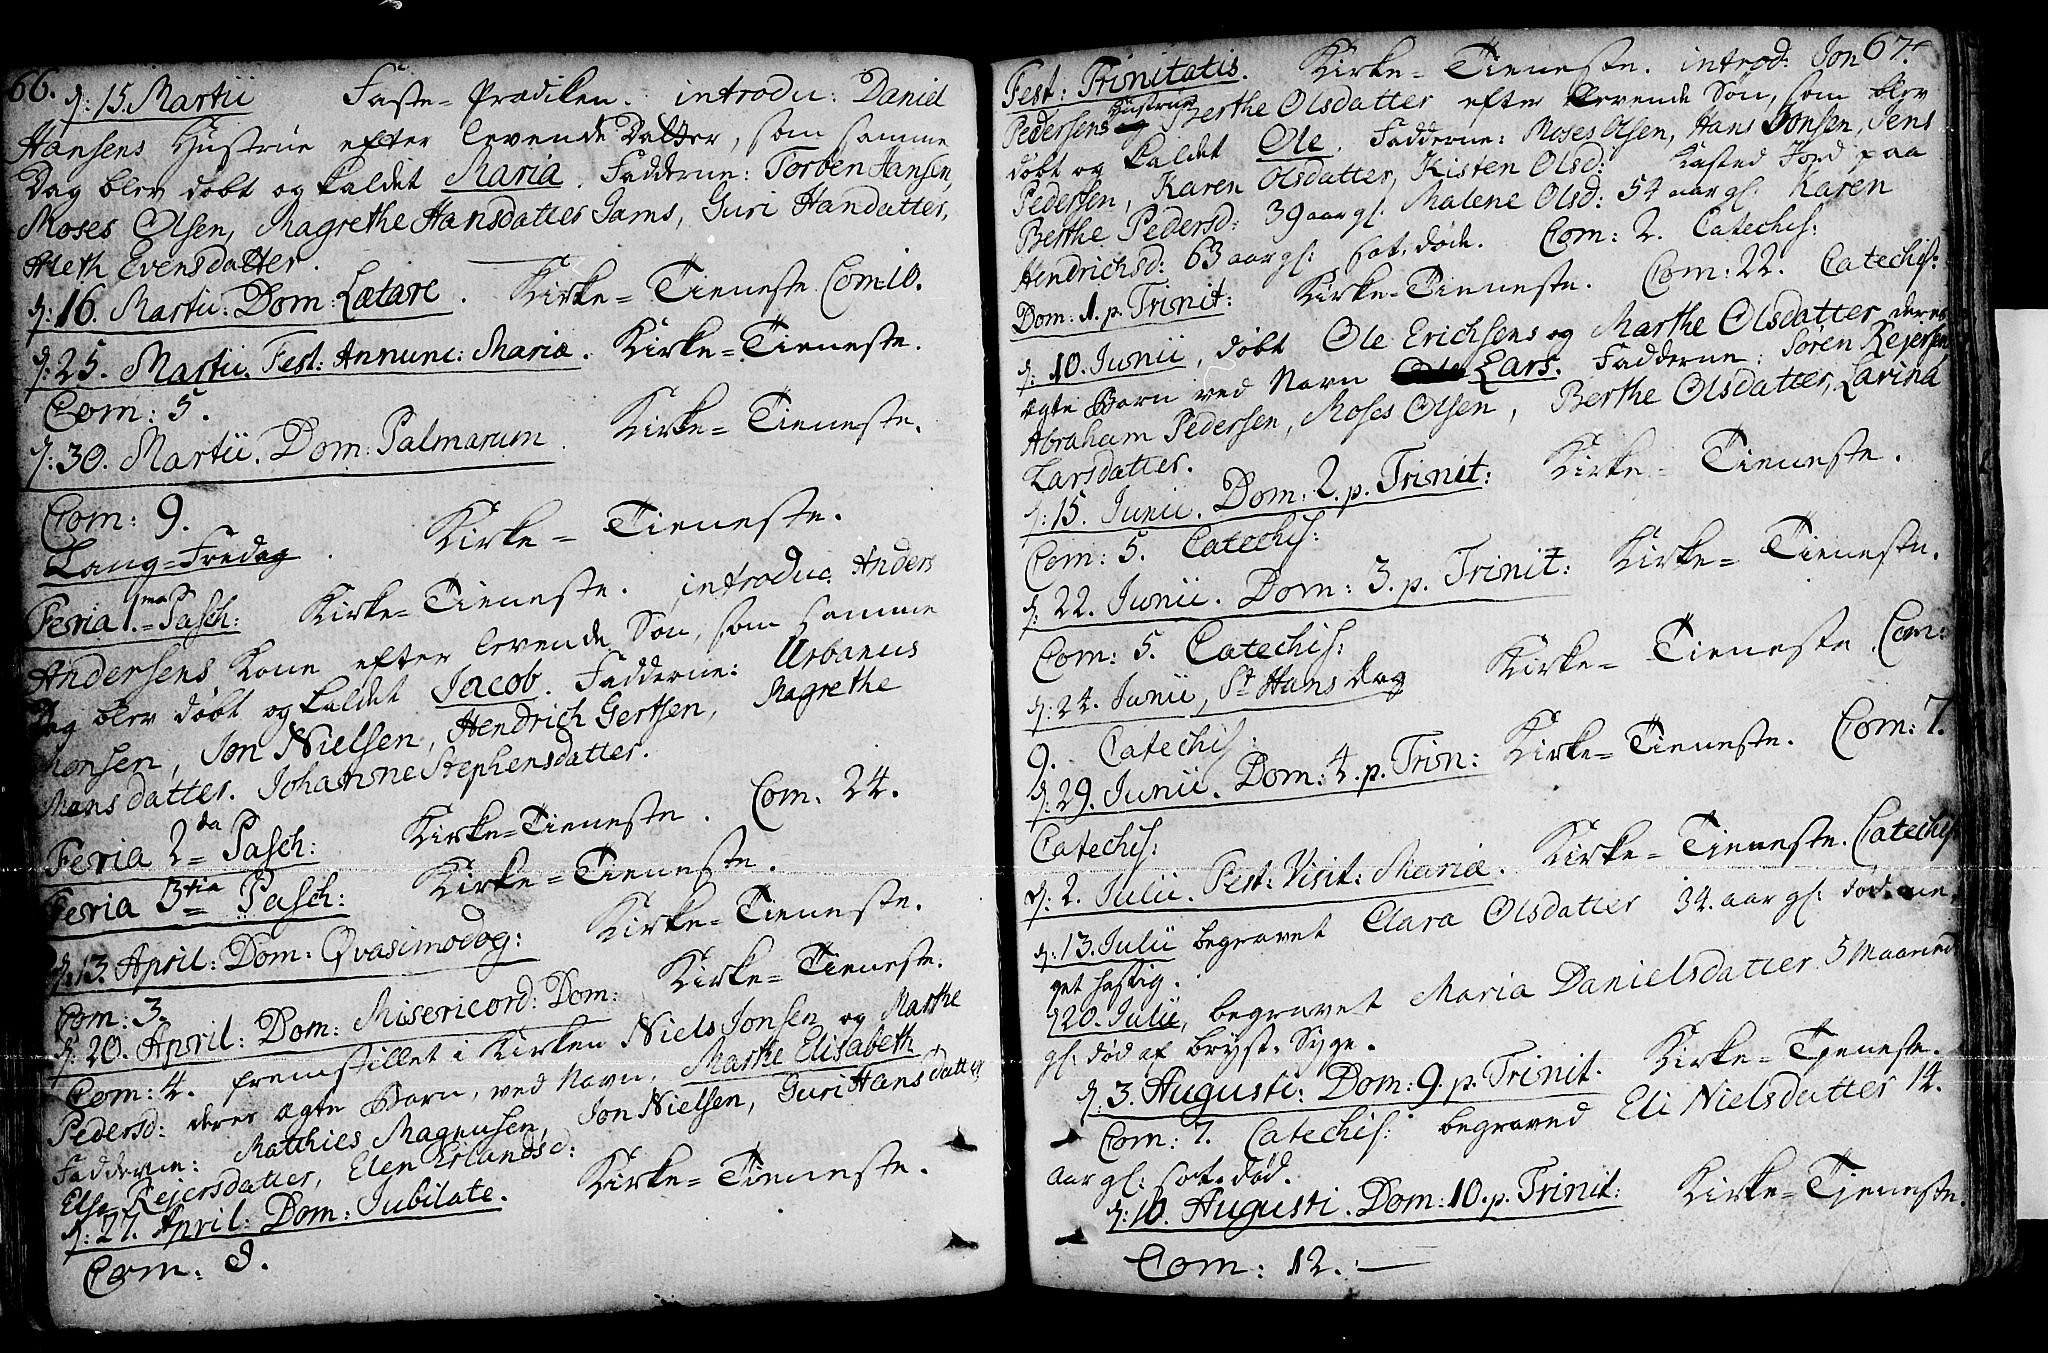 66.
d: 15. Martii Faste-Prædiken. introdu: Daniel
Hansens Hustrue efter levende Datter, som samme
Dag blev døbt og kaldet Maria. Fadderne: Torben Hansen,
Moses Olsen, Magrethe Hansdatter Jams, Guri Handatter,
Evensdatter.
d: 16. Martii: Dom: Lætare. Kirke-Tieneste Com 10.
d: 25. Martii. Fest: Annunc: Mariæ. Kirke-Tieneste.
Com: 5.
d: 30. Martii. Dom: Palmarum. Kirke-Tieneste.
Com: 9.
Lang-Fredag. Kirke-Tieneste.
Feria 1.ma Pasch: Kirke-Tieneste. introduc. Anders
Andersens Kone efter levende Søn, som samme
Dag blev døbt og kaldet Jacob. Fadderne: Urbanus
Monsen, Jon Nielsen, Hendrich Gertsen, Magrethe
Mansdatter. Johanne Stephensdatter.
Feria 2da Pasch: Kirke-Tieneste. Com. 24.
Feria 3tia Pasch: Kirke-Tieneste.
d: 13. April: Dom: Qvasimodog: Kirke-Tieneste.
Com: 3.
d: 20. April: Dom: Misericord: Dom: Kirke-Tieneste.
Com: 4. fremstillet i Kirken Niels Jonsen og Marthe
Pedersd: deres ægte Barn, ved Navn, Marthe Elisabeth
Fadderne: Matthies Magnusen, Jon Nielsen, Guri Hansdatter,
Else Rejersdatter, Elen Erlandsd:
d: 27. April: Dom: Jubilate. Kirke-Tieneste.
Com: 8.
67.
Fest: Trinitatis. Kirke-Tieneste. introd: Jon
Pedersens Hustrue Berthe Olsdatter efter levende Søn, som blev
døbt og kaldet Ole. Fadderne: Moses Olsen, Hans Jonsen, Jens
Pedersen, Karen Olsdatter, Kisten Olsd: Kasted Jord paa
Berthe Pedersd: 39 aar gl: Malene Olsd: 54 aar gl: Karen
Hendrichsd: 63 aar gl: sot: døde. Com: 2. Catechis:
Dom: 1. p. Trinit: Kirke-Tieneste. Com: 22. Catechis:
d: 10. Junii, døbt Ole Erichsens og Marthe Olsdatter deres
ægte Barn ved Navn Lars. Fadderne: Søren Rejersen
Abraham Pedersen, Moses Olsen, Berthe Olsdatter, Lavina
Larsdatter.
d: 15. Junii. Dom: 2. p. Trinit: Kirke-Tieneste.
Com: 5. Catechis:
d: 22. Junii. Dom: 3. p. Trinit: Kirke-Tieneste.
Com: 5. Catechis:
d: 24. Junii, St Hans dag Kirke-Tieneste. Com:
9. Catechis:
d: 29. Junii. Dom: 4. p. Trin: Kirke-Tieneste. Com: 7.
Catechis:
d: 2. Julii. Fest: Visit: Mariæ. Kirke-Tieneste. Catechis
d: 13. Julii begravet Clara Olsdatter 34. aar gl: død me-
get hastig.
d 20. Julii, begravet Maria Danielsdatter 5 Maaned
gl: død af bryst-Syge.
d: 3. Augusti: Dom: 9. p. Trinit. Kirke-Tjeneste.
Com: 7. Catechis: begraved Eli Nielsdatter 14.
aar gl: sot-død.
d: 10. Augusti. Dom: 10. p. Trinit: Kirke-Tjeneste.
Com: 12.